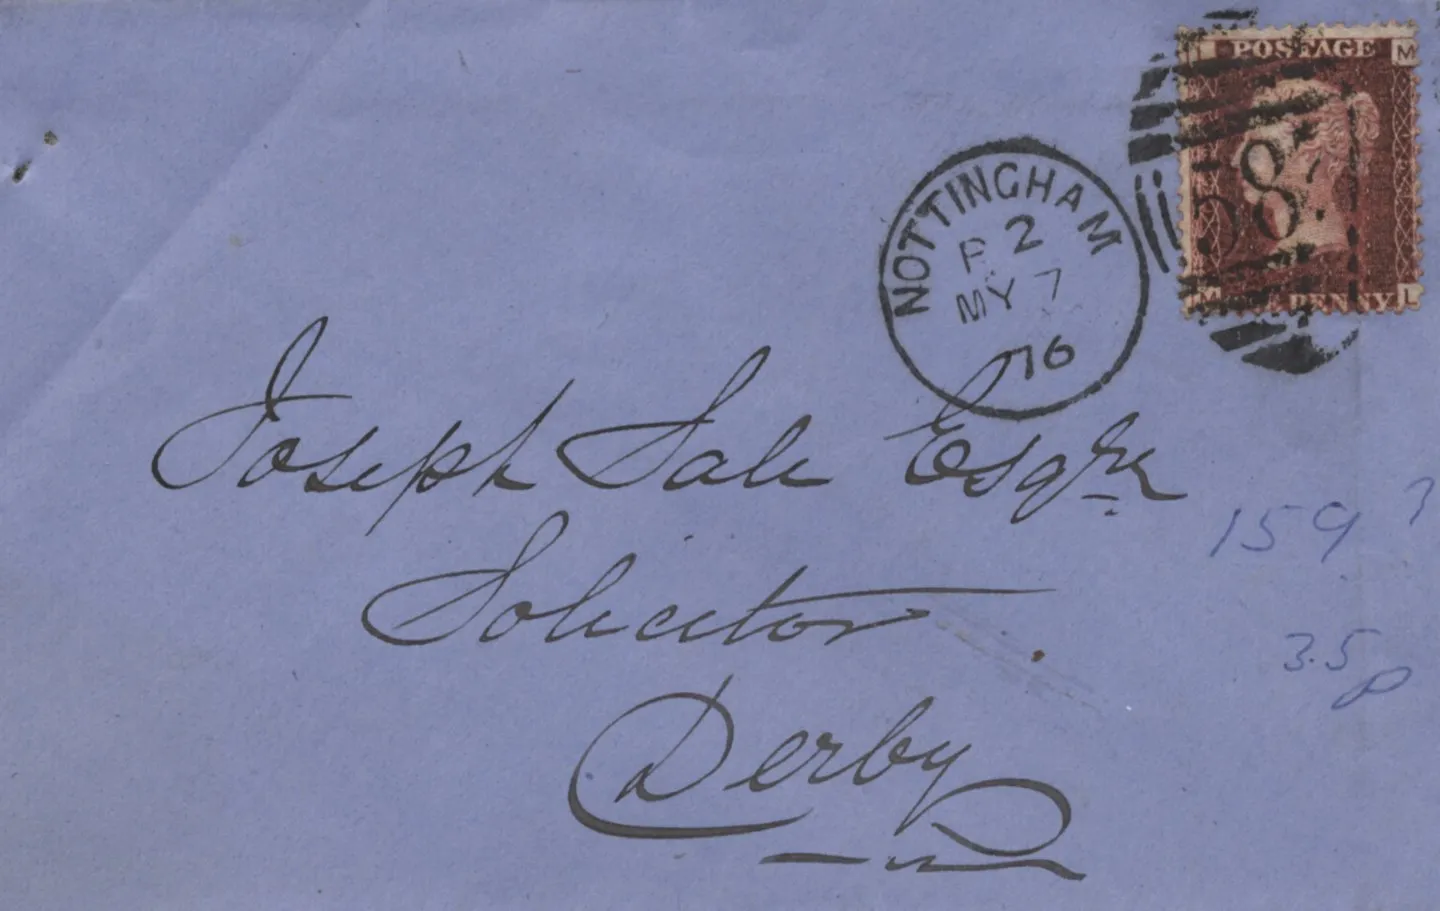 POSTAGE M
587
M PENNY L
NOTTINGHAM
F 2
MY 7
76
Joseph Sale Esqre
Solicitor
Derby
159
3.5p